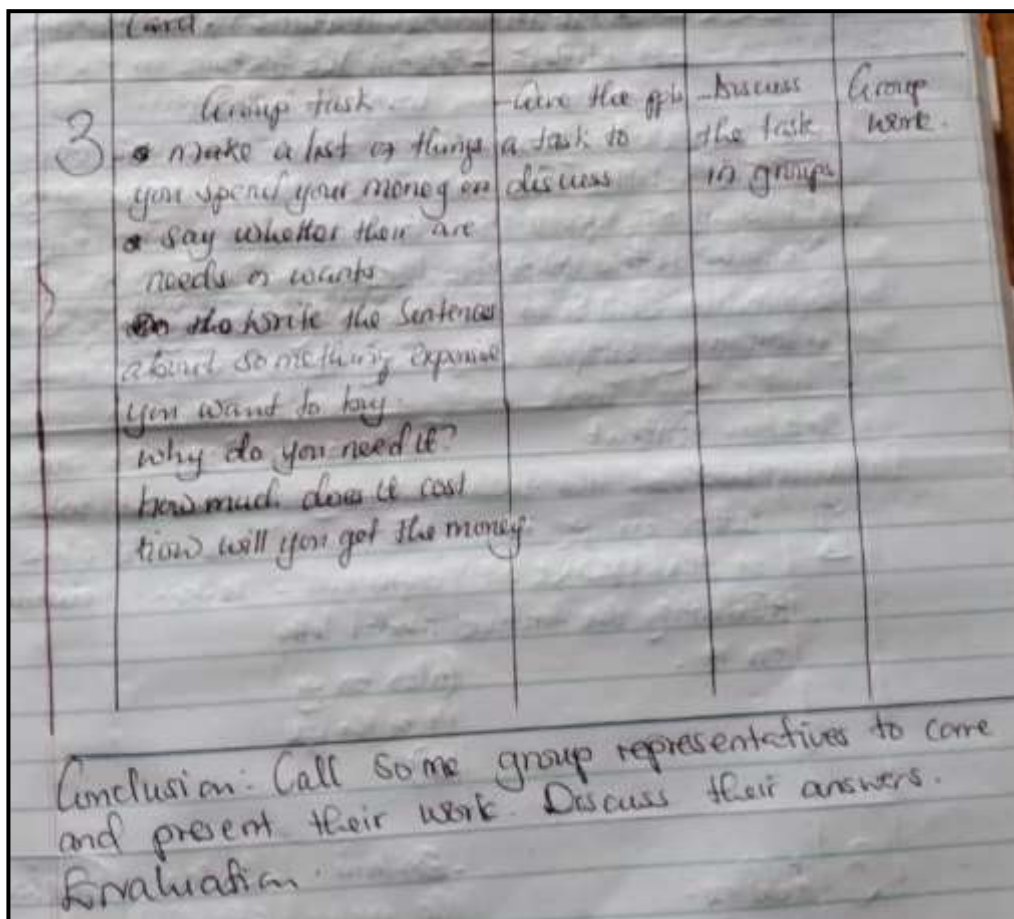 Card.
3
Group task.
make a list of things
you spend your money on
say whether their are
needs or wants
the Write the Sentences
about something expensive
you want to buy.
why do you need it?
how much does it cost
How will you get the money.
- Give the
a task to
discuss
- Discuss
the task
in groups
Group
work.
Conclusion: Call some group representatives to come
and present their work. Discuss their answers.
Evaluation.